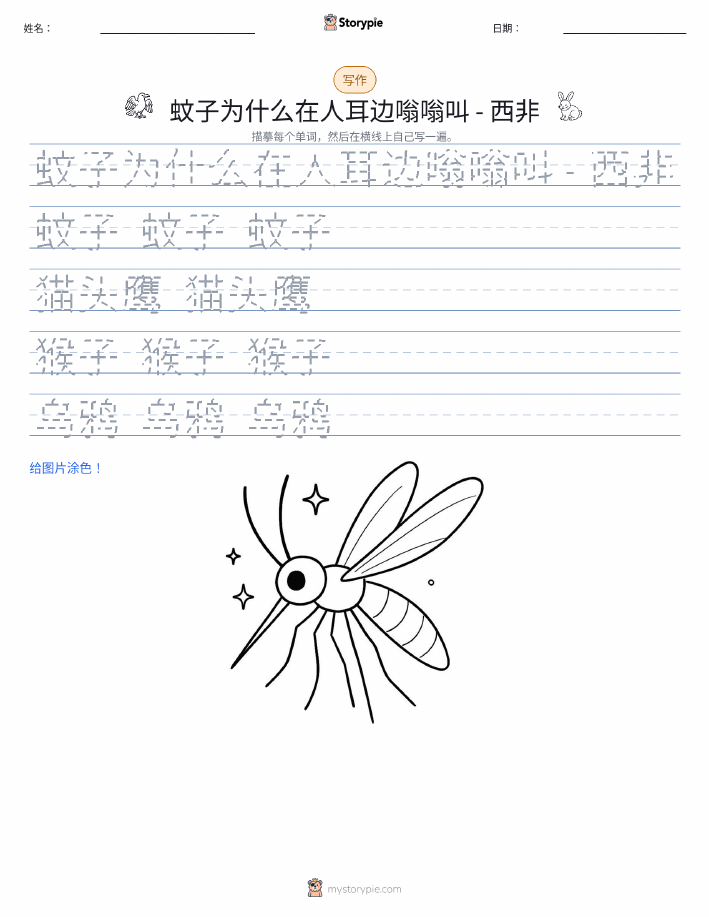 姓名：
Storypie
日期：
写作
蚊子为什么在人耳边嗡嗡叫 - 西非
描摹每个单词，然后在横线上自己写一遍。
蚊子为什么在人耳边嗡嗡叫 - 西非
蚊子 蚊子 蚊子
猫头鹰 猫头鹰
猴子 猴子 猴子
乌鸦 乌鸦 乌鸦
给图片涂色！
mystorypie.com